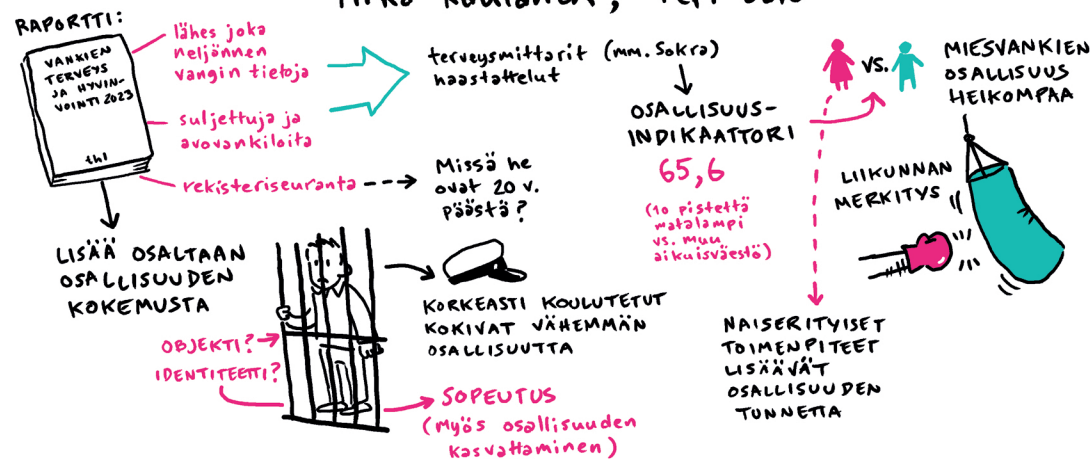 RAPORTTI:
VANKIEN
TERVEYS
JA HYVIN-
VOINTI 2023
thl
lähes joka
neljännen
vangin tietoja
suljettuja ja
avovankiloita
rekisteriseuranta
terveysmittarit (mm. Sokra)
haastattelut
Missä he
ovat 20 v.
päästä?
LISÄÄ OSALTAAN
OSALLISUUDEN
KOKEMUSTA
OBJEKTI?
IDENTITEETTI?
KORKEASTI KOULUTETUT
KOKIVAT VÄHEMMÄN
OSALLISUUTTA
SOPEUTUS
(myös osallisuuden
kasvattaminen)
OSALLISUUS-
INDIKAATTORI
65,6
(10 pistettä
matalampi
vs. muu
aikuisväestö)
VS.
MIESVANKIEN
OSALLISUUS
HEIKOMPAA
LIIKUNNAN
MERKITYS
NAISERITYISET
TOIMENPITEET
LISÄÄVÄT
OSALLISUUDEN
TUNNETTA